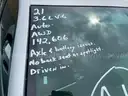 21
3.6L V6
Auto.
AWD
142,606
Axle & battery issues.
No back seat or spotlight.
Driven in.